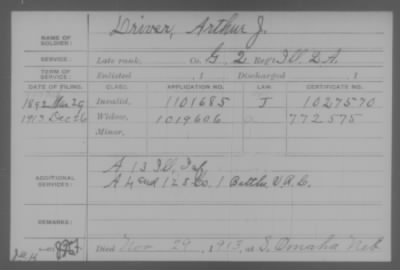 NAME OF SOLDIER: Driver, Arthur J.
SERVICE: Late rank, Co. G, 2 Reg't Ill. L.A.
TERM OF SERVICE: Enlisted , 1 Discharged , 1
DATE OF FILING. CLASS. APPLICATION NO. LAW. CERTIFICATE NO.
1892 Mar 29 Invalid, 1101685 J 1027570
1913 Dec 26 Widow, 1019606 772575
Minor,
ADDITIONAL SERVICES: A 13 Ill. Inf
A 4 and 128 Co. 1 Battln. V.R.C.
REMARKS:
Died Nov 29, 1913, at S. Omaha Neb